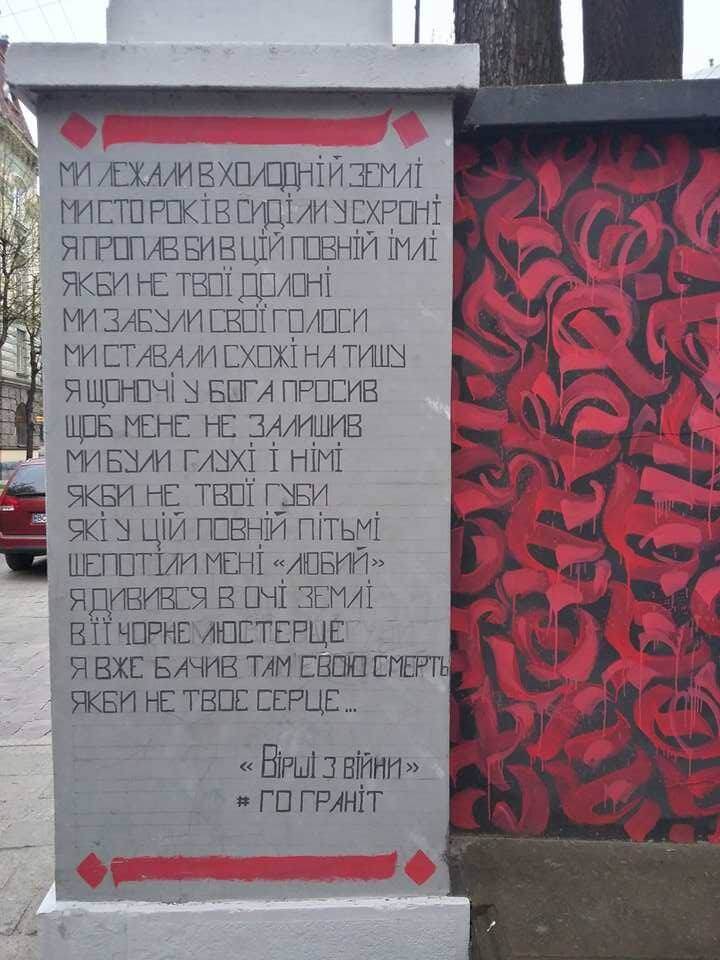 МИ ЛЕЖАЛИ В ХОЛОДНІЙ ЗЕМЛІ
МИ СТО РОКІВ СИДІЛИ У СХРОНІ
Я ПРОПАВ БИ В ЦІЙ ПОВНІЙ ІМЛІ
ЯКБИ НЕ ТВОЇ ДОЛОНІ
МИ ЗАБУЛИ СВОЇ ГОЛОСИ
МИ СТАВАЛИ СХОЖІ НА ТИШУ
Я ЩОНОЧІ У БОГА ПРОСИВ
ЩОБ МЕНЕ НЕ ЗАЛИШИВ
МИ БУЛИ ГЛУХІ І НІМІ
ЯКБИ НЕ ТВОЇ ГУБИ
ЯКІ У ЦІЙ ПОВНІЙ ПІТЬМІ
ШЕПОТІЛИ МЕНІ «ЛЮБИЙ»
Я ДИВИВСЯ В ОЧІ ЗЕМЛІ
В ЇЇ ЧОРНЕ ЛЮСТЕРЦЕ
Я ВЖЕ БАЧИВ ТАМ СВОЮ СМЕРТЬ
ЯКБИ НЕ ТВОЄ СЕРЦЕ...
«ВІРШІ З ВІЙНИ»
# ГО ГРАНІТ